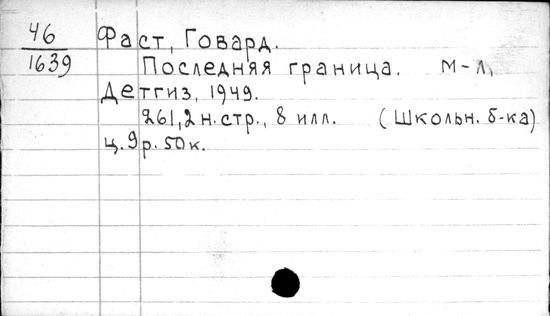 46 Фаст, Говард.
1639 Последняя граница. М-Л,
Детгиз, 1949.
261,2 н.стр., 8 илл. (Школьн. б-ка)
ц. 9 р. 50 к.